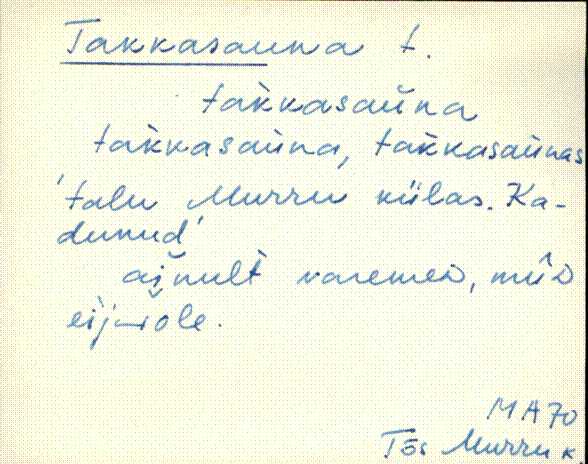 Takkasauna t.
takkasau̯na
takkasau̯na, takkasau̯nas
'talu Murru külas. Ka-
dunud'
ai̯nult varemeD, müD
eij‿ole.
MA70
Tõs Murru k.